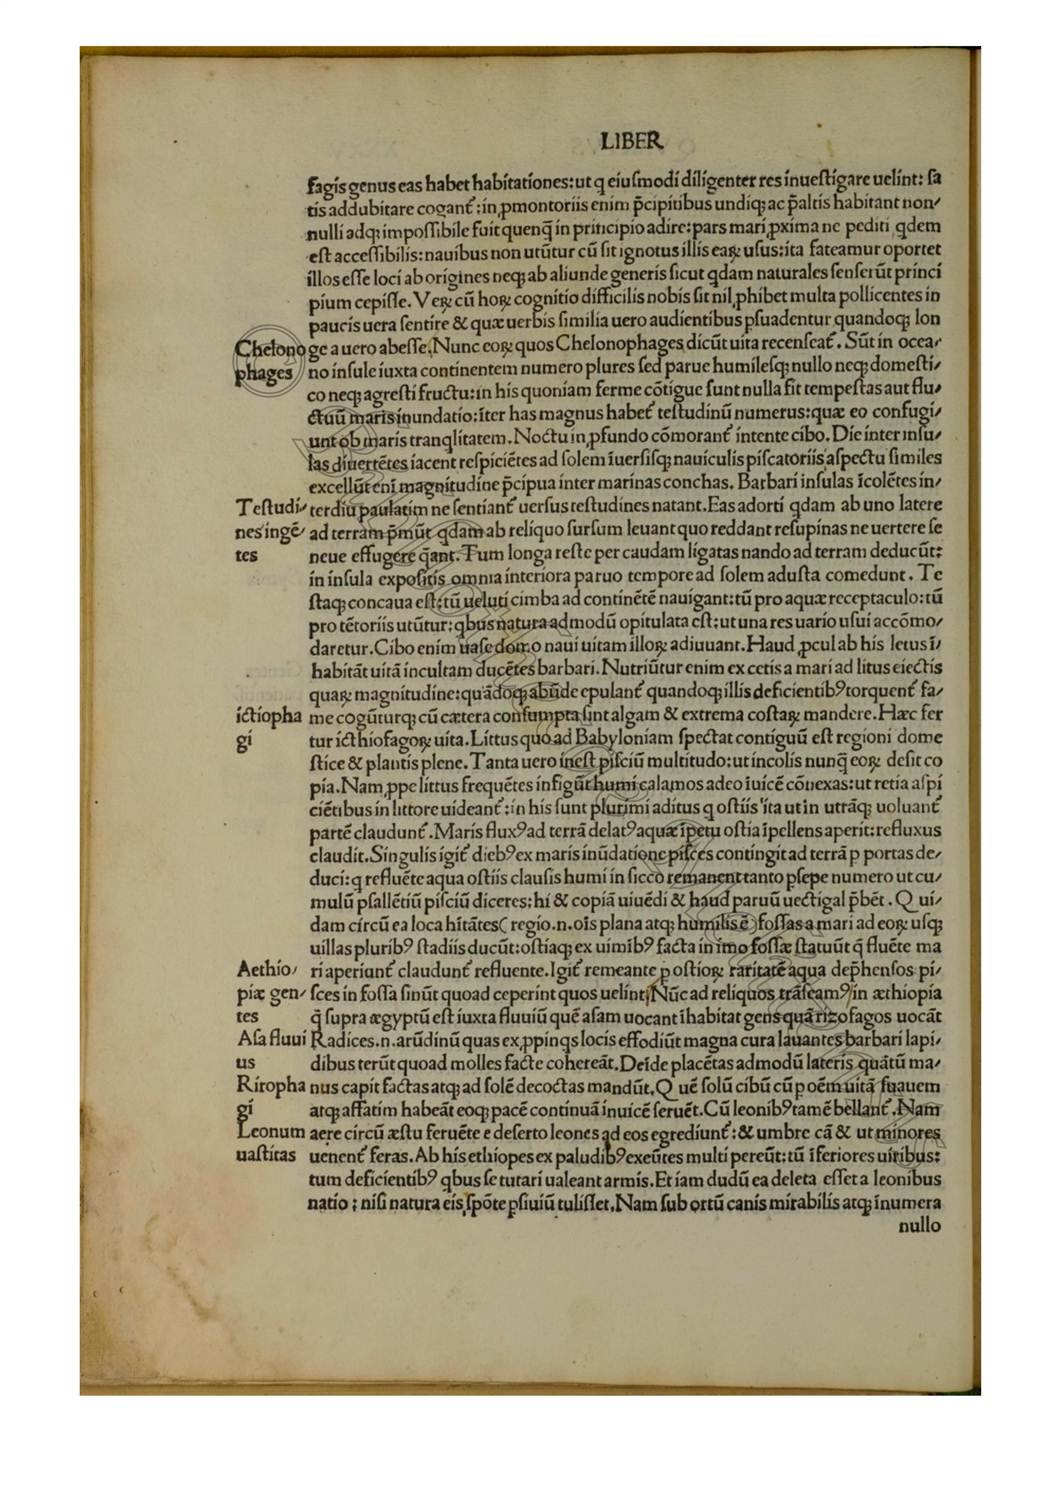 LIBER
fagis genus eas habet habitationes: ut q eiusmodi diligenter res inuestigare uelint: sa
tis addubitare cogant᷑: in ꝓmontoriis enim p̄cipitibus undiq; ac p̄altis habitant non/
nulli adq; impossibile fuit quenq̄ in principio adire: pars mari ꝓxima ne pediti qdem
est accessibilis: nauibus non utūtur cū sit ignotus illis eaꝝ usus: ita fateamur oportet
illos esse loci ab origines neq; ab aliunde generis sicut qdam naturales senserūt princi
pium cepisse. Veꝝ cū hoꝝ cognitio difficilis nobis sit nil ꝓhibet multa pollicentes in
paucis uera sentire & quæ uerbis similia uero audientibus psuadentur quandoq; lon
Chelono
phages
ge a uero abesse. Nunc eoꝝ quos Chelonophages dicūt uita recenseat᷑. Sūt in ocea/
no insule iuxta continentem numero plures sed parue humilesq; nullo neq; domesti/
co neq; agresti fructu: in his quoniam ferme cōtigue sunt nulla fit tempestas aut flu/
ctuū maris inundatio: īter has magnus habet᷑ testudinū numerus: quæ eo confugi/
unt ob maris tranqlitatem. Noctu in ꝓfundo cōmorant᷑ intente cibo. Die inter insu/
las diuertētes iacent respiciētes ad solem īuersisq; nauiculis piscatoriis aspectu similes
excellūt eni magnitudine p̄cipua inter marinas conchas. Barbari insulas īcolētes in/
Testudi/
nes ingē/
tes
terdiu paulatim ne sentiant᷑ uersus testudines natant. Eas adorti qdam ab uno latere
ad terram p̄mūt qdam ab reliquo sursum leuant quo reddant resupinas ne uertere se
neue effugere q̄ant. Tum longa reste per caudam ligatas nando ad terram deducūt:
in insula expositis omnia interiora paruo tempore ad solem adusta comedunt. Te
staq; concaua est: tū ueluti cimba ad continētē nauigant: tū pro aquæ receptaculo: tū
pro tētoriis utūtur: qbus natura admodū opitulata est: ut una res uario usui accōmo/
daretur. Cibo enim uase domo naui uitam illoꝝ adiuuant. Haud ꝓcul ab his letus ī/
habitāt uitā incultam ducētes barbari. Nutriūtur enim ex cetis a mari ad litus eiectis
quaꝝ magnitudine: quādoq; abūde epulant᷑ quandoq; illis deficientibꝰ torquent᷑ fa/
ictiopha
gi
me cogūturq; cū cætera consumpta sint algam & extrema costaꝝ mandere. Hæc fer
tur icthiofagoꝝ uita. Littus quo ad Babyloniam spectat contiguū est regioni dome
stice & plantis plene. Tanta uero inest pisciū multitudo: ut incolis nunq̄ eoꝝ desit co
pia. Nam ꝓpe littus frequētes infigūt humi calamos adeo īuicē cōnexas: ut retia aspi
ciētibus in littore uideant᷑: in his sunt plurimi aditus q ostiis ita ut in utrāq; uoluant᷑
partē claudunt᷑. Maris fluxꝰ ad terrā delatꝰ aquæ īpetu ostia īpellens aperit: refluxus
claudit. Singulis igit᷑ diebꝰ ex maris inūdatione pisces contingit ad terrā p portas de/
duci: q refluēte aqua ostiis clausis humi in sicco remanent tanto psepe numero ut cu/
mulū psallētiū pisciū diceres: hi & copiā uiuēdi & haud paruū uectigal p̄bēt. Q ui/
dam circū ea loca hītātes ( regio. n. oīs plana atq; humilis ē ) fossas a mari ad eoꝝ usq;
uillas pluribꝰ stadiis ducūt: ostiaq; ex uimibꝰ facta in imo fossæ statuūt q̄ fluēte ma
Aethio/
piæ gen/
tes
ri aperiunt᷑ claudunt᷑ refluente. Igit᷑ remeante p ostioꝝ raritatē aqua dep̄hensos pi/
sces in fossa sinūt quoad ceperint quos uelint. Nūc ad reliquos trāseamꝰ in æthiopia
q̄ supra ægyptū est iuxta fluuiū quē asam uocant īhabitat gens quā rizofagos uocāt
Asa fluui
us
Radices. n. arūdinū quas ex ꝓpinqs locis effodiūt magna cura lauantes barbari lapi/
dibus terūt quoad molles facte cohereāt. Deīde placētas admodū lateris quātū ma/
Riropha
gi
nus capit factas atq; ad solē decoctas mandūt. Q uē solū cibū cū p oēm uitā suauem
atq; affatim habeāt eoq; pacē continuā inuicē seruēt. Cū leonibꝰ tamē bellant᷑. Nam
Leonum
uastitas
aere circū æstu feruēte e deserto leones ad eos egrediunt᷑: & umbre cā & ut minores
uenent᷑ feras. Ab his ethiopes ex paludibꝰ exeūtes multi pereūt: tū īferiores uiribus:
tum deficientibꝰ qbus se tutari ualeant armis. Et iam dudū ea deleta esset a leonibus
natio; nisi natura eis spōte psiuiū tulisset. Nam sub ortū canis mirabilis atq; inumera
nullo